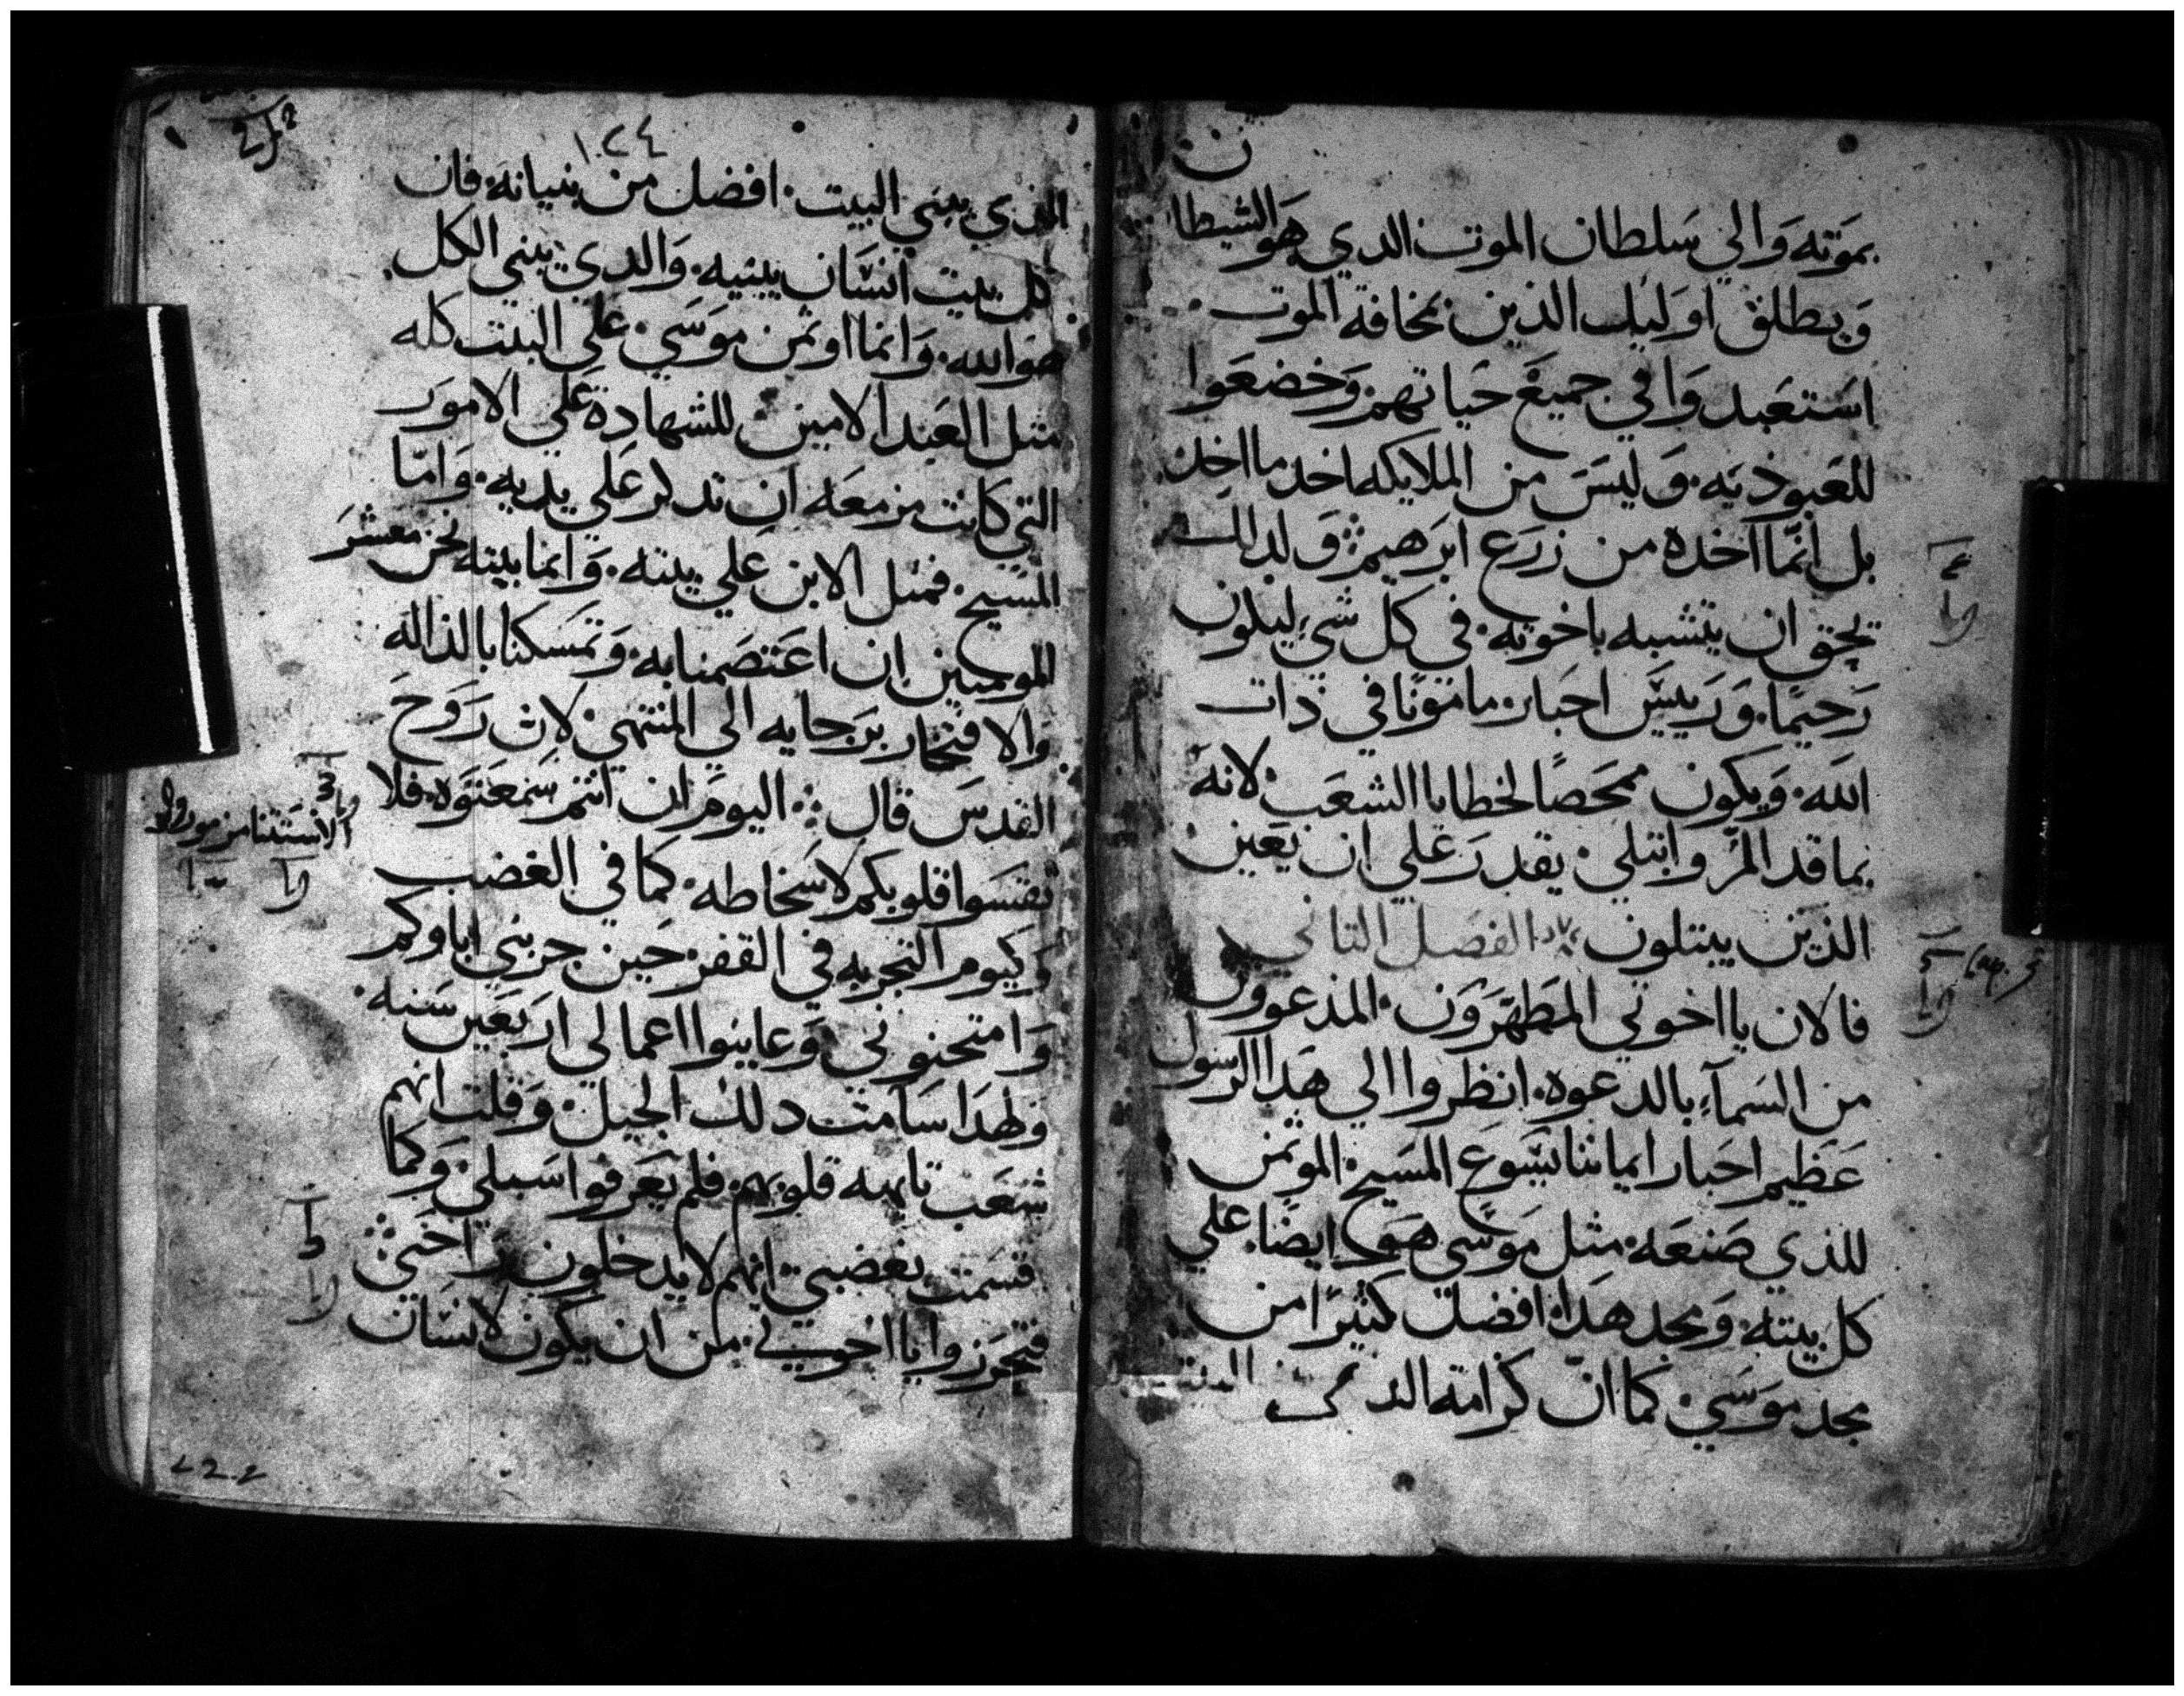 بموته والي سلطان الموت الدي هو الشيطان
ويطلق اوليك الذين بمخافة الموت
استعبدوا في جميع حياتهم وخضعوا
للعبوذيه وليس من الملايكه اخد ما اخد
بل انما اخده من زرع ابرهيم ولدلك
يحق ان يتشبه باخوته في كل شي ليكون
رحيما وريس احبار مامونا في ذات
الله ويكون ممحصا لخطايا الشعب لانه
بما قد المر وابتلي يقدر علي ان يعين
الذين يبتلون الفصل الثاني
فالان يا اخوتي المطهرون المدعوون
من السماء بالدعوه انظروا الي هدا الرسول
عظيم احبار ايماننا يسوع المسيح الموتمن
للذي صنعه مثل موسي هو ايضا علي
كل بيته ومجد هدا افضل كثيرا من
مجد موسي كما ان كرامة الدي
Cap. 3
١٠٢٤
الذي يبني البيت افضل من بنيانه فان
كل بيت انسان يبنيه والدي يبني الكل
هو الله وانما اوتمن موسي علي البيت كله
مثل العبد الامين للشهادة علي الامور
التي كانت مزمعه ان تدكر علي يديه واما
المسيح فمثل الابن علي بيته وانما بيته نحن معشر
المومنين ان اعتصمنا به وتمسكنا بالداله
والافتخار برجايه الي المنتهي لان روح
القدس قال اليوم ان انتم سمعتوه فلا
تقسوا قلوبكم لاسخاطه كما في الغضب
وكيوم التجربه في القفر حين جربني اباوكم
وامتحنوني وعاينوا اعمالي اربعين سنه
ولهدا سامت دلك الجيل وقلت انهم
شعب تايهه قلوبهم فلم يعرفوا سبلي وكما
قسمت بغضبي انهم لا يدخلون راحتي
فتحرزوا يا اخوتي من ان يكون لانسان